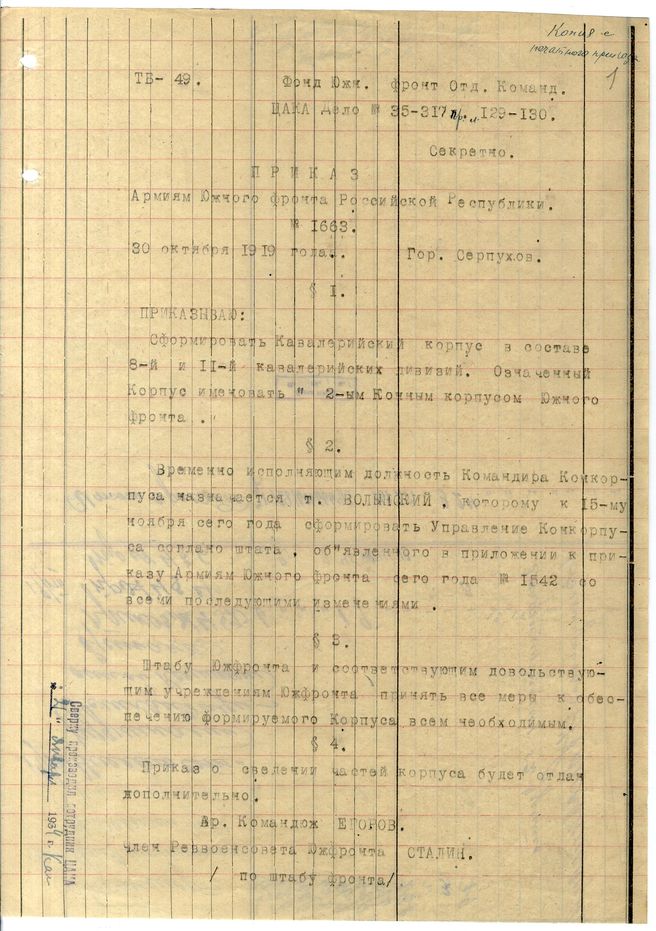 Копия с
печатного приказа
1
ТБ- 49. Фонд Южн. фронт Отд. Команд.
ЦАКА Дело № 35-317 пр. л. 129-130.
Секретно.
П Р И К А З
Армиям Южного фронта Российской Республики.
№ 1663.
30 октября 1919 года. Гор. Серпухов.
§ I.
ПРИКАЗЫВАЮ:
Сформировать Кавалерийский корпус в составе
8-й и II-й кавалерийских дивизий. Означенный
Корпус именовать " 2-ым Конным корпусом Южного
фронта ."
§ 2.
Временно исполняющим должность Командира Конкор-
пуса назначается т. ВОЛЫНСКИЙ , которому к 15-му
ноября сего года сформировать Управление Конкорпу-
са соглано штата , об"явленного в приложении к при-
казу Армиям Южного фронта сего года № 1542 со
всеми последующими изменениями .
§ 3.
Штабу Южфронта и соответствующим довольствую-
щим учреждениям Южфронта принять все меры к обес-
печению формируемого Корпуса всем необходимым.
§ 4.
Приказ о сведении частей корпуса будет отдан
дополнительно.
Вр. Командюж ЕГОРОВ.
член Реввоенсовета Южфронта СТАЛИН.
/ по штабу фронта/
Сверку производил сотрудник ЦАКА
января 193 г.